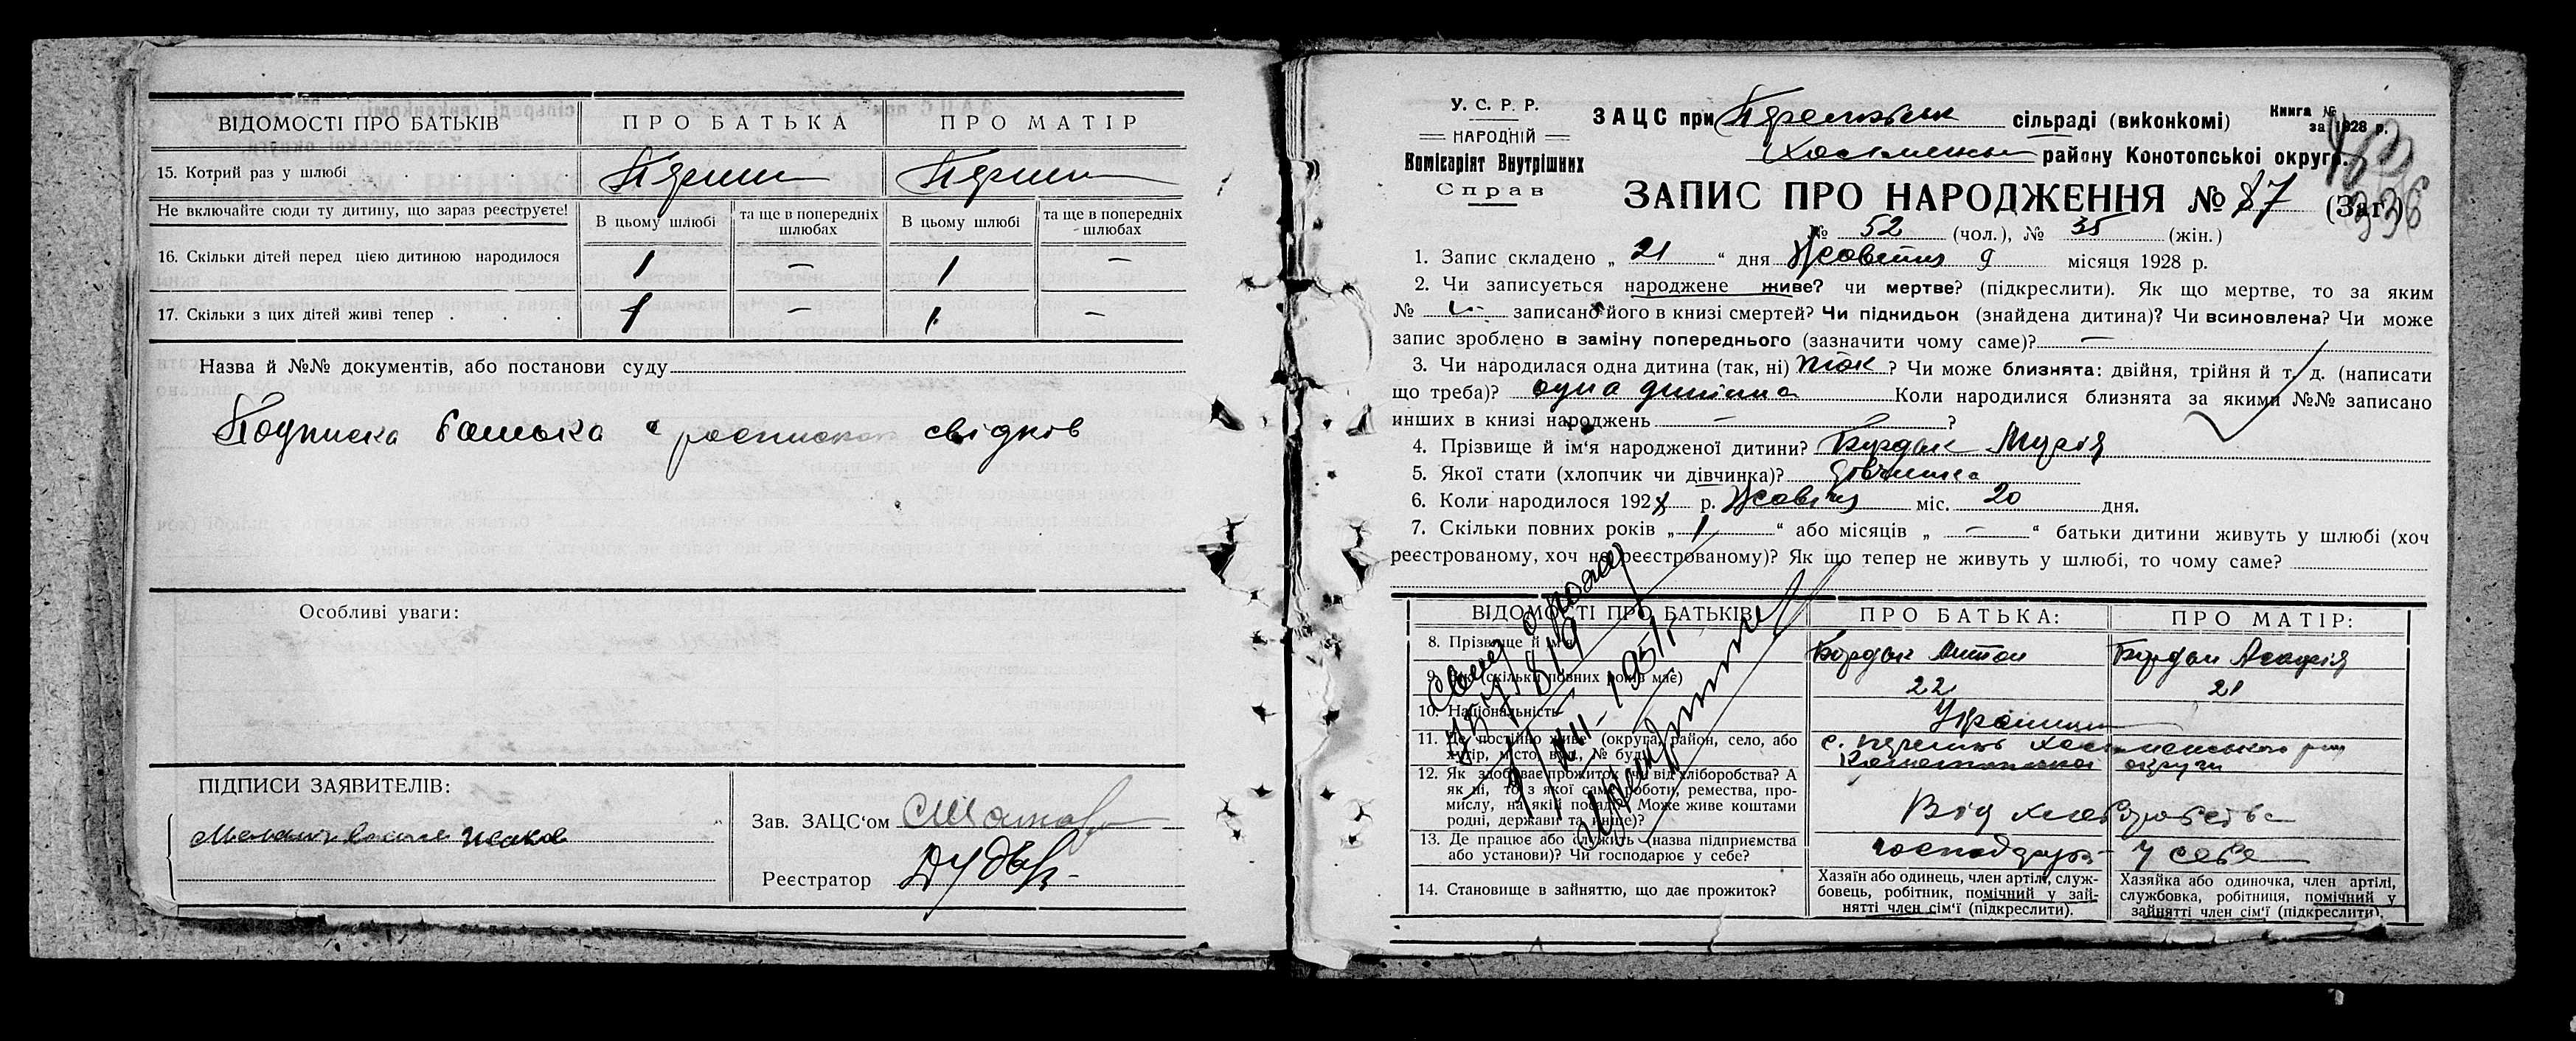 ВІДОМОСТІ ПРО БАТЬКІВ
ПРО БАТЬКА
ПРО МАТІР
15. Котрий раз у шлюбі . . . .
Перший
Перший
Не включайте сюди ту дитину, що зараз реєструєте!
В цьому шлюбі
та ще в попередніх шлюбах
В цьому шлюбі
та ще в попередніх шлюбах
16. Скільки дітей перед цією дитиною народилося
1 — 1 —
17. Скільки з цих дітей живі тепер . . .
1 — 1 —
Назва й №№ документів, або постанови суду
Подписка батька с роспискою свідків
Особливі уваги:
ПІДПИСИ ЗАЯВИТЕЛІВ:
Зав. ЗАЦС'ом
Реєстратор
У. С. Р. Р.
НАРОДНІЙ
Комісаріят Внутрішніх
Справ
ЗАЦС при сільраді (виконкомі)
Книга №
за 1928 р.
району Конотопської округи.
ЗАПИС ПРО НАРОДЖЕННЯ № 87 (Заг.)
336
№ 52 (чол.), № 35 (жін.)
1. Запис складено „ 21 “ дня Жовтня місяця 1928 р.
2. Чи записується народжене живе? чи мертве? (підкреслити). Як що мертве, то за яким
№ — записано його в книзі смертей? Чи підкидьок (знайдена дитина)? Чи всиновлена? Чи може
запис зроблено в заміну попереднього (зазначити чому саме)? —
3. Чи народилася одна дитина (так, ні) так ? Чи може близнята: двійня, трійня й т. д. (написати
що треба)? одна дитина Коли народилися близнята за якими №№ записано
инших в книзі народжень — ?
4. Прізвище й ім'я народженої дитини? Бордак Марія
5. Якої стати (хлопчик чи дівчинка)? дівчинка
6. Коли народилося 1928 р. Жовтня міс. 20 дня.
7. Скільки повних років „ 1 “ або місяців „ — “ батьки дитини живуть у шлюбі (хоч
реєстрованому, хоч не реєстрованому)? Як що тепер не живуть у шлюбі, то чому саме?
ВІДОМОСТІ ПРО БАТЬКІВ
ПРО БАТЬКА:
ПРО МАТІР:
8. Прізвище й ім'я
Бордак Антон
Бордак
9. Вік (скільки повних років має)
22
21
10. Національність
Українці
11. Де постійно живе (округа, район, село, або
хутір, місто, вул., № буд.)
с.
Конотопської округи
12. Як здобуває прожиток, чи від хліборобства? А
як ні, то з якої саме роботи, ремества, про-
мислу, на якій посаді? Може живе коштами
родні, держави та инше)?
Від хліборобства
13. Де працює або служить (назва підприємства
або установи)? Чи господарює у себе?
господарює у себе
14. Становище в зайняттю, що дає прожиток?
Хазяїн або одинець, член артілі, служ-
бовець, робітник, помічний у зай-
нятті член сім'ї (підкреслити).
Хазяйка або одиночка, член артілі,
службовка, робітниця, помічний у
зайнятті член сім'ї (підкреслити).